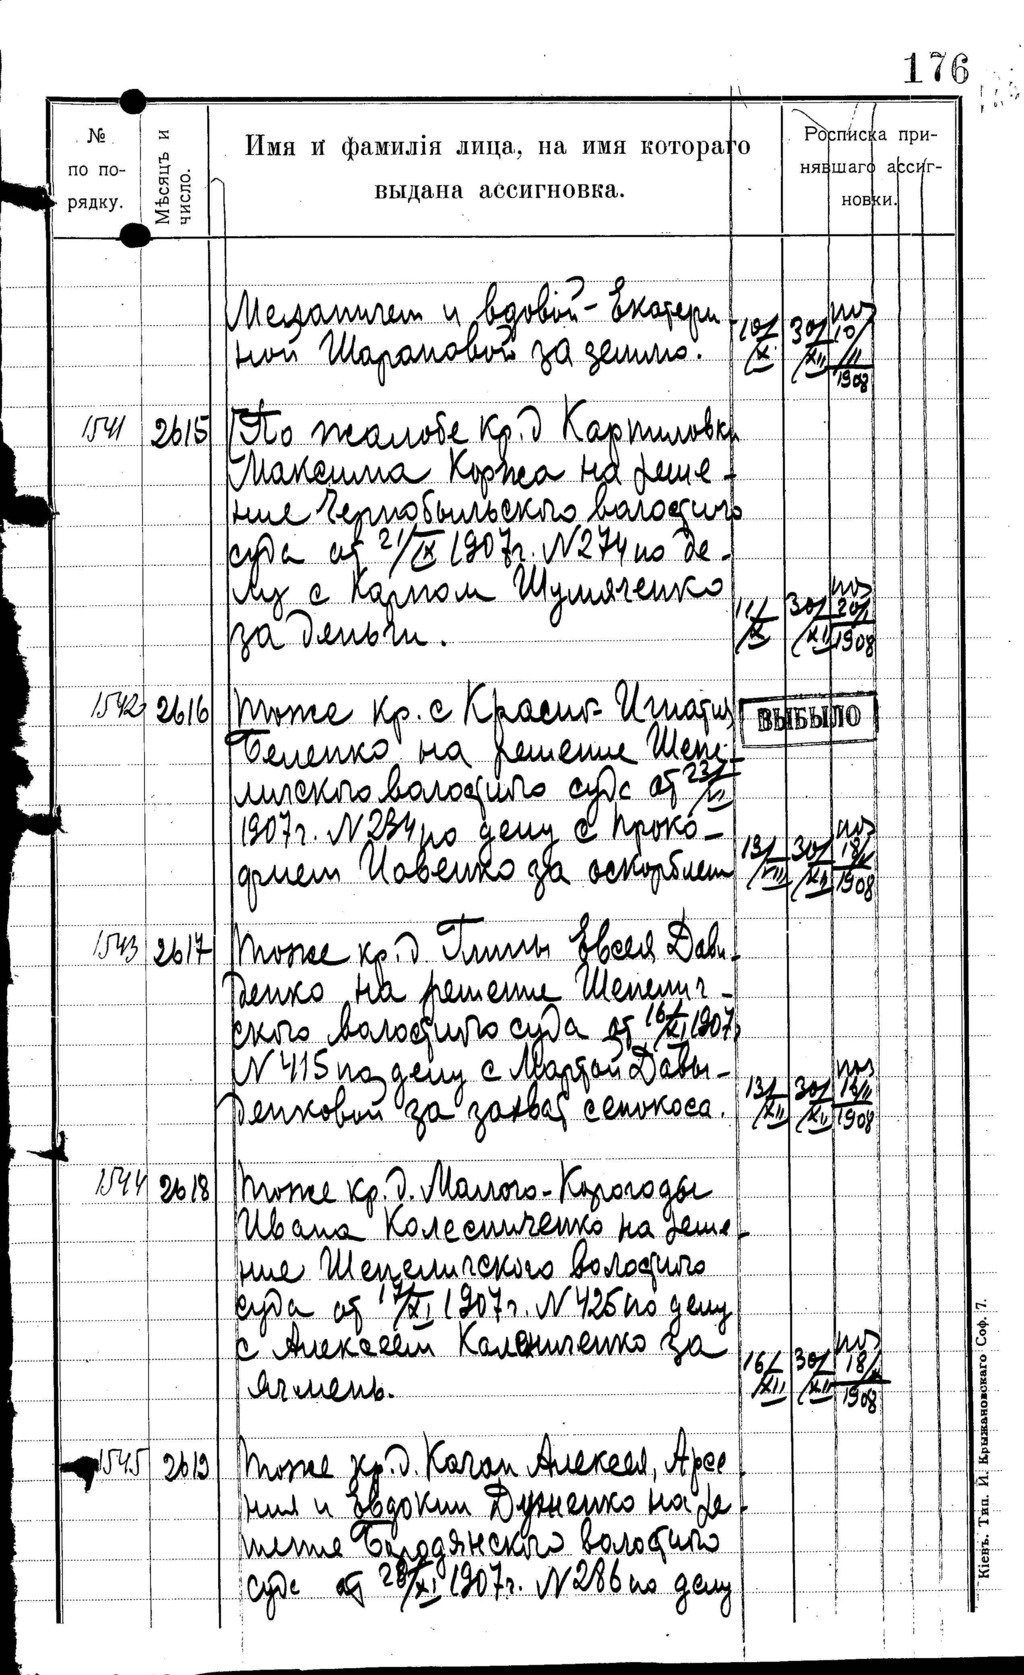 176
№ по порядку.
Мѣсяцъ и число.
Имя и фамилія лица, на имя котораго
выдана ассигновка.
Росписка принявшаго ассигновки.
и вдовой - Екатери
ной Шараповой за землю.
10/X 30/XII 10/II 1908
1541 2615 По жалобе кр. д Карпиловки
Максима Коржа на реше-
ние Чернобыльского волостного
суда от 21/IX 1907г. N274 по де-
лу с Карпом Шумяченко
за деньги.
11/X 30/XI 20/I 1908
1542 2616 тоже кр. с Красно- Игнатия
Беленко на решение Шепе-
личского волостного суда от 23/VI
1907г. N234 по делу с Проко-
фием Иовенко за оскорблен
ВЫБЫЛО
13/VIII 30/XII 18/II 1908
1543 2617 тоже кр. д. Глинны Евсея Давы-
денко на решение Шепелич-
ского волостного суда от 16/XI 1907
N 415 по делу с Мартой Давы-
денковой за захват сенокоса.
13/XII 30/XII 13/II 1908
1544 2618 тоже кр. д. Малого-Корогоды
Ивана Колесниченко на реше-
ние Шепеличского волостного
суда от 17/XI 1907г. N425 по делу
с Алексеем Калениченко за
ячмень.
16/XII 30/XII 18/ 1908
1545 2619 тоже кр. д. Копачи Алексея, Арсе
ния и Евдокии Дужченко на ре-
шение Бородянского волостного
суда от 28/XI 1907г. N286 по делу
Кіевъ. Тип. И. Крыжановскаго Соф. 7.